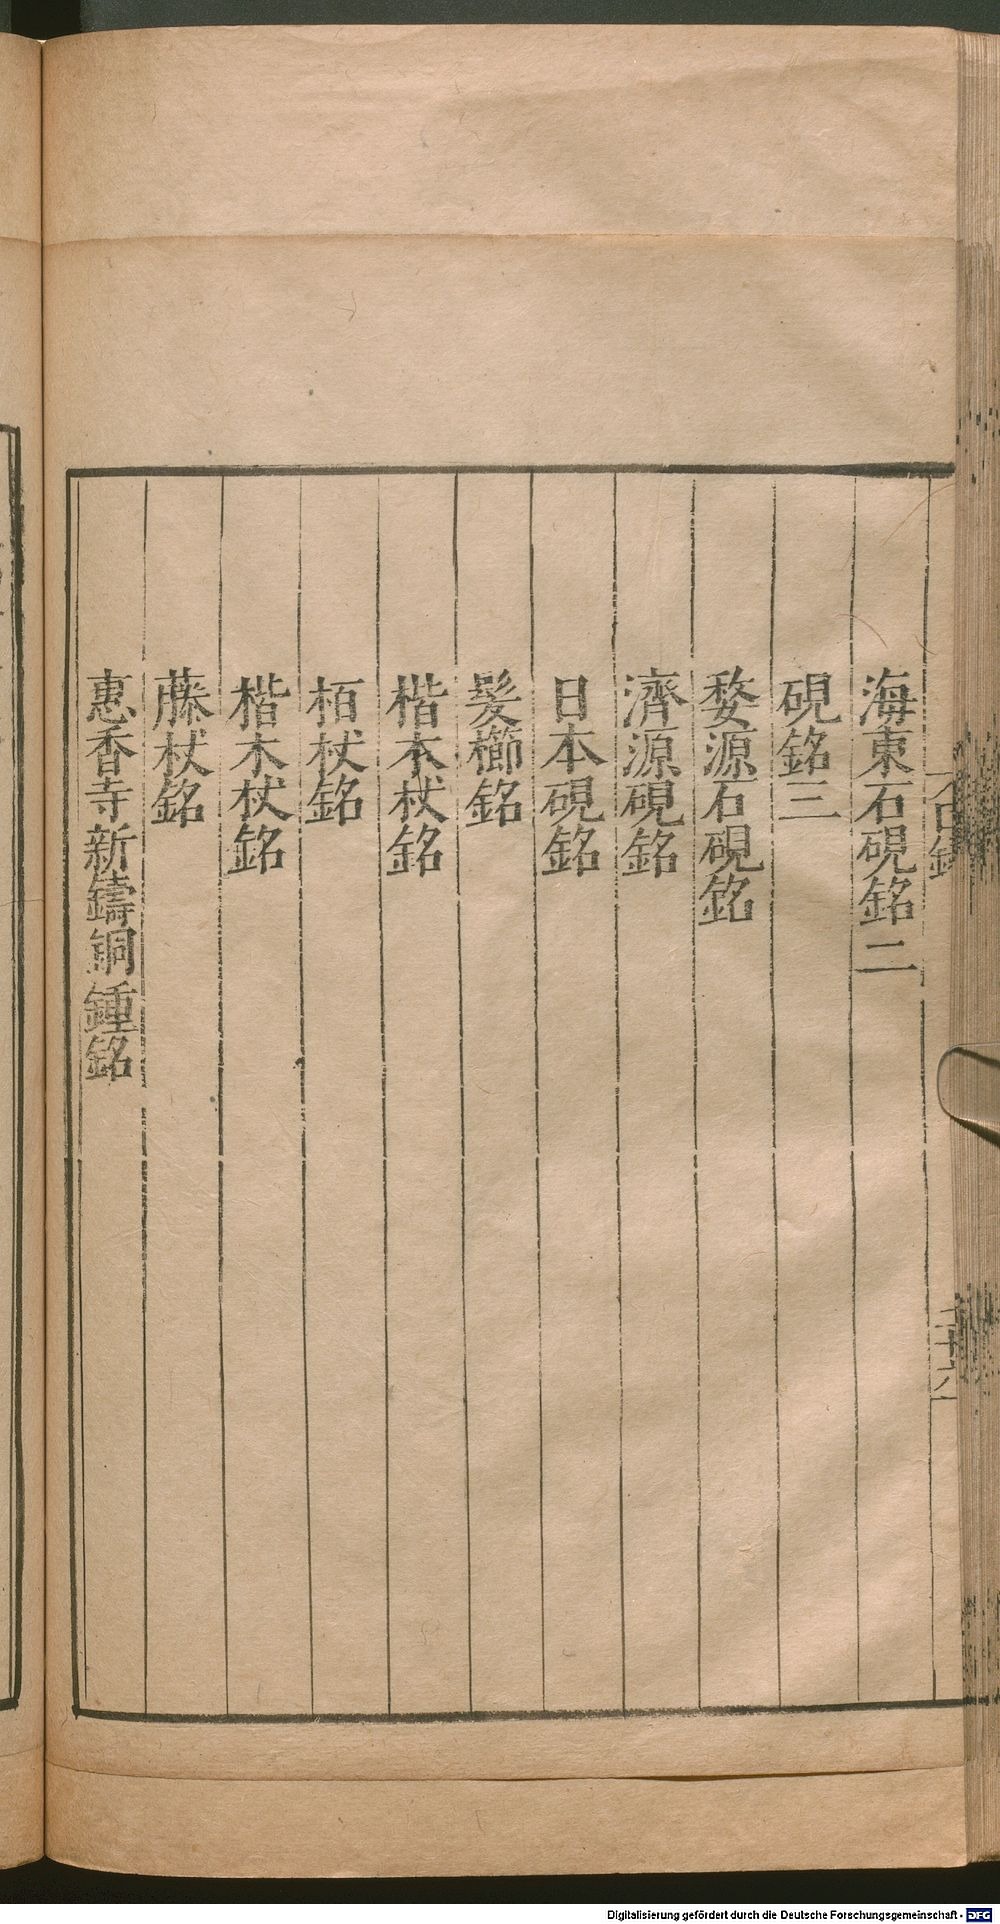 海東石硯銘二
硯銘三
婺源石硯銘
濟源硯銘
日本硯銘
髮櫛銘
楷木杖銘
栢杖銘
楷木杖銘
藤杖銘
惠香寺新鑄銅鍾銘
Digitalisierung gefördert durch die Deutsche Forschungsgemeinschaft - DFG